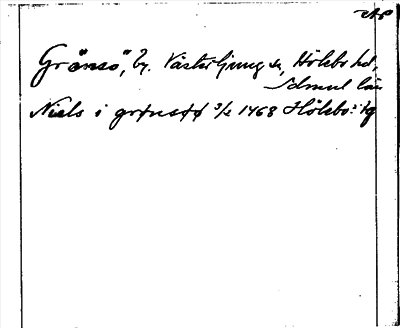 Grönsö, by. Västerljung sn, Hölebo hd,
Södmnl län
Niels i grønsøø 3/2 1468 Hölebo: tg